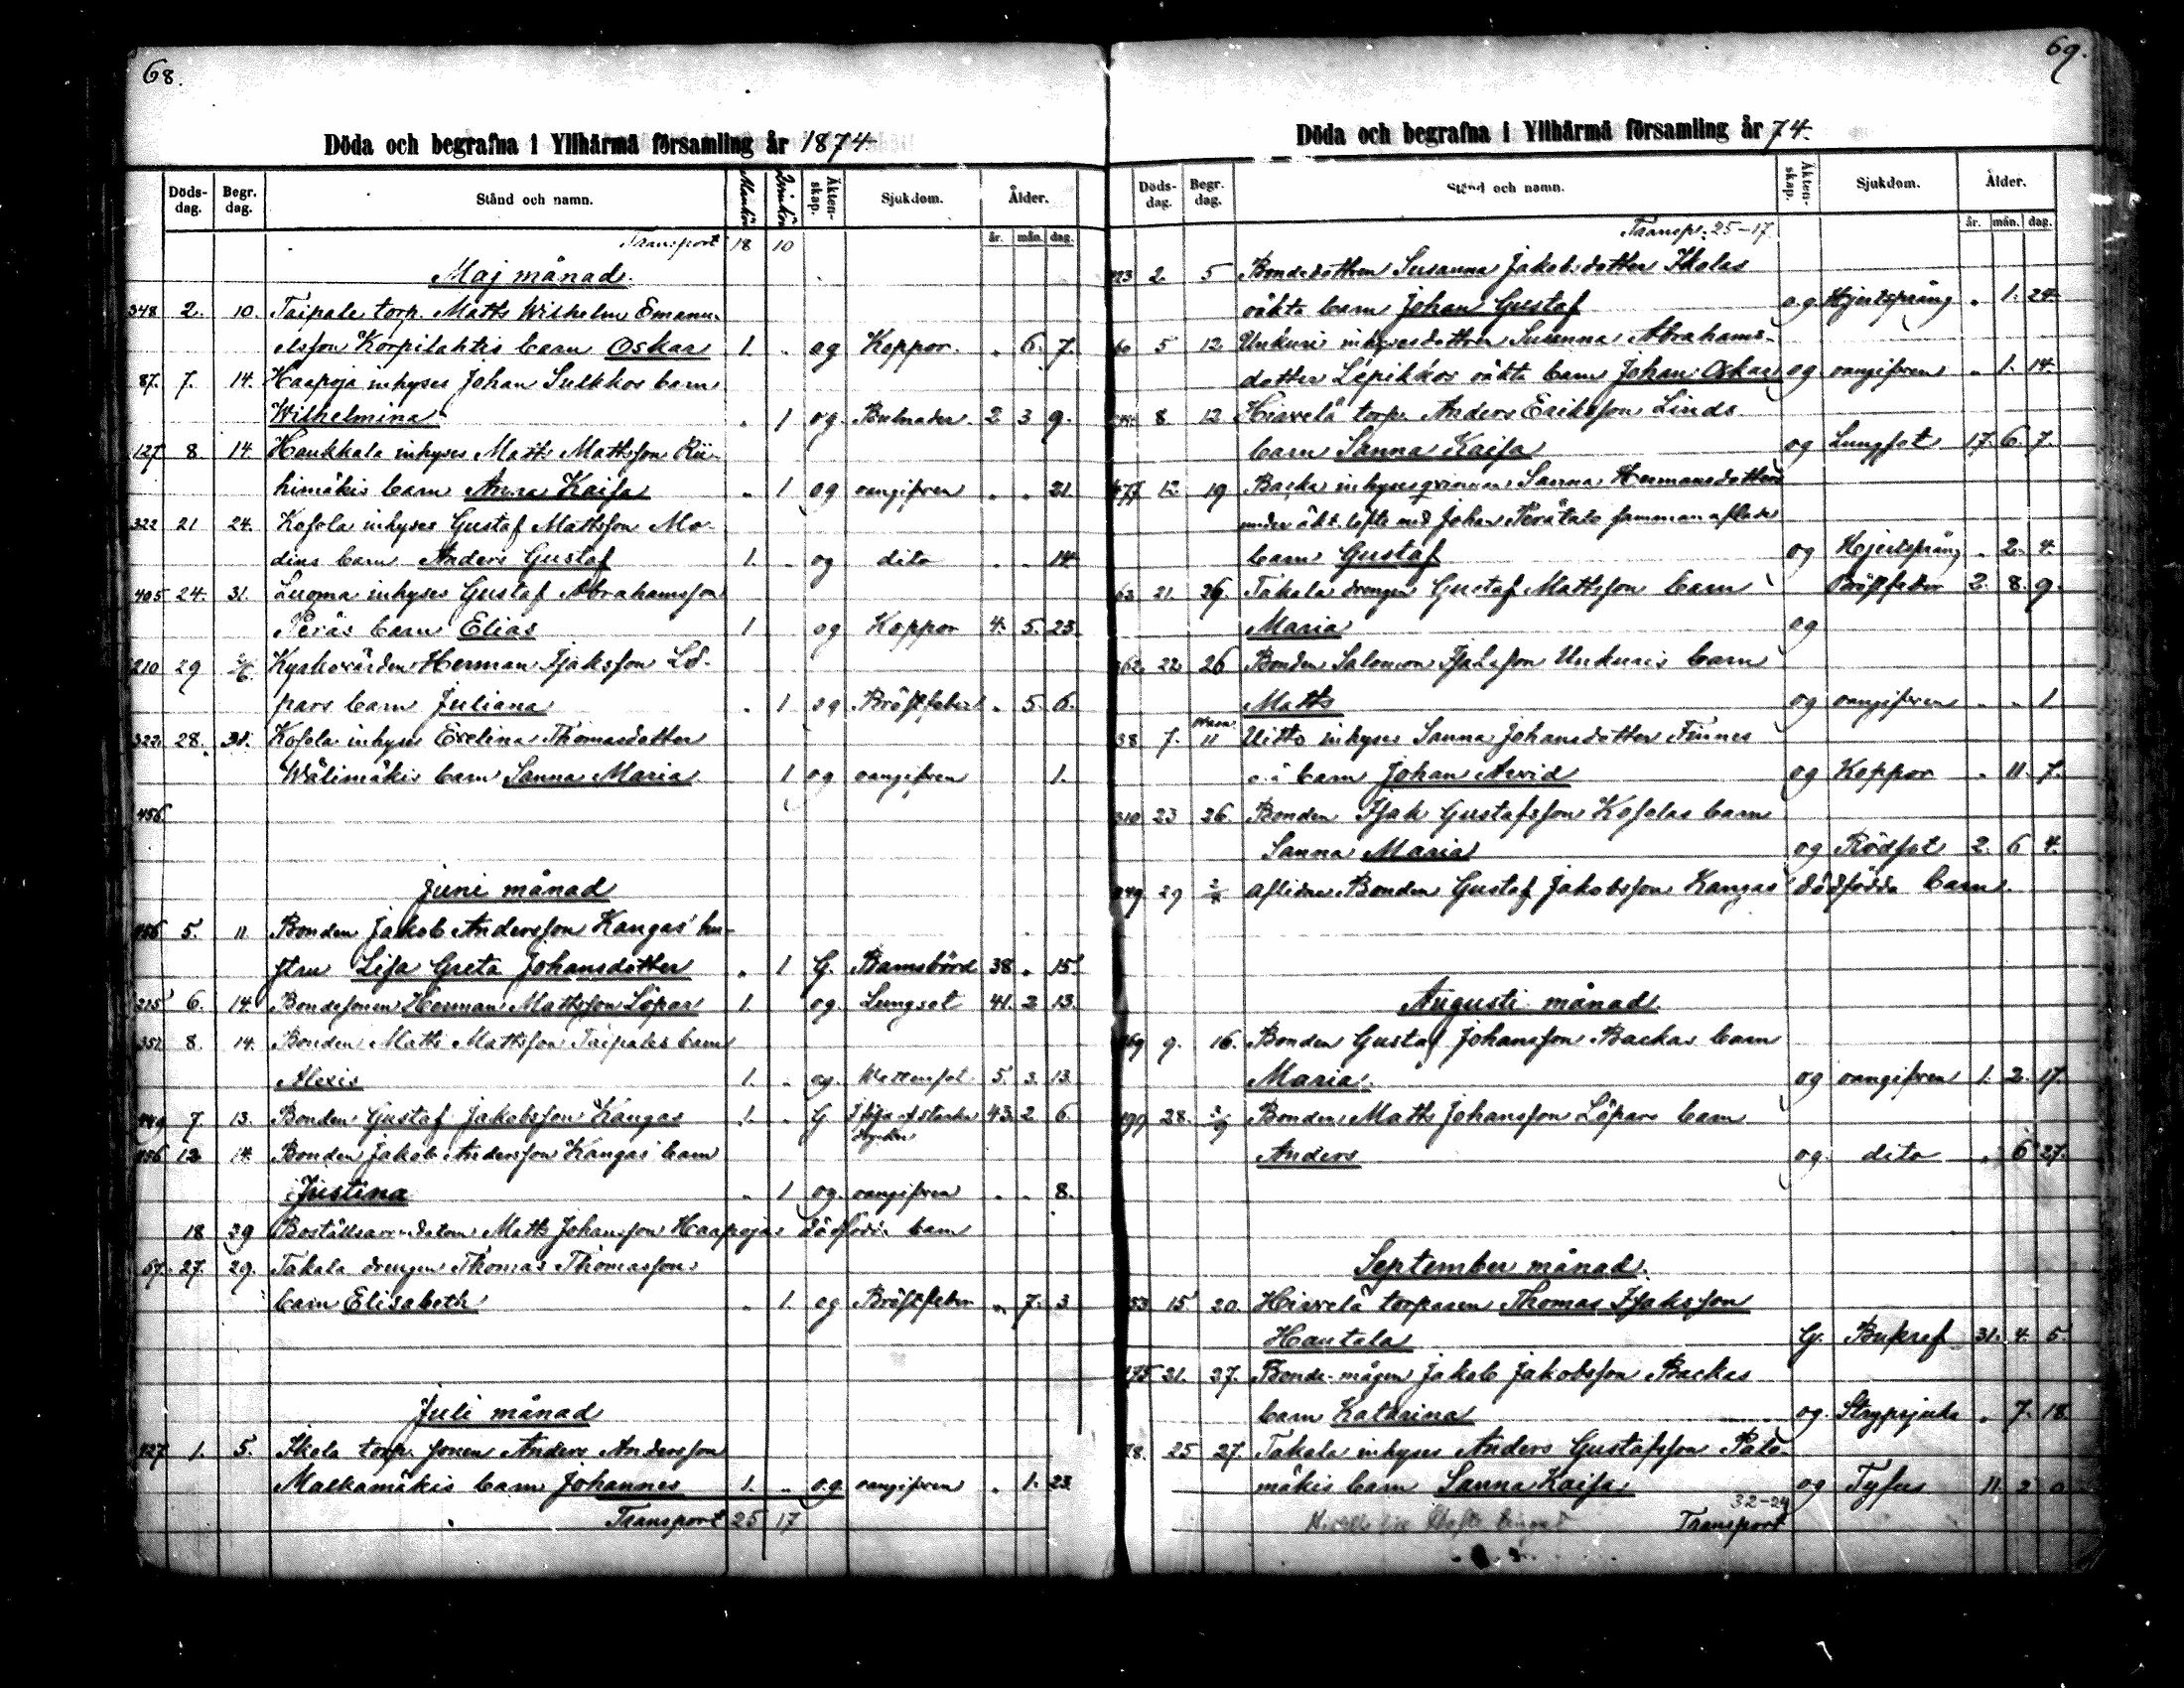 68.
Döda och begrafna i Ylihärmä församling år 1874
Döds-dag. Begr. dag. Stånd och namn. Mankön Qvinkön Äkten-skap. Sjukdom. Ålder.
år. mån. dag.
Transport 18 10
Maj månad.
348 2. 10. Taipale torp. Matts Wilhelm Emanu-
elsson Korpilahtis barn Oskar 1. " og Koppor. " 6. 7.
87. 7. 14. Haapoja inhyses Johan Sulkkos barn
Wilhelmina " 1 og. Bulnader. 2 3 9.
127 8. 14 Haukkala inhyses Matts Mattsson Rii-
himäkis barn Anna Kaisa " 1 og oangifven " " 21
322 21 24. Kosola inhyses Gustaf Mattsson Mo-
dins barn Anders Gustaf 1. " og dito " " 14
405 24. 31. Luoma inhyses Gustaf Abrahamsson
Peräs barn Elias 1 og Koppor 4. 5. 23.
210 29 Kyrkovärden Herman Isaksson Lö-
pars barn Juliana " 1 og Bröstfeber " 5. 6.
322 28. 31. Kosola inhyses Evelina Thomasdotter
Wälimäkis barn Sanna Maria 1 og oangifven 1.
456
Juni månad
456 5. 11 Bonden Jakob Andersson Kangas' hu-
stru Lisa Greta Johansdotter " 1 G. Barnsbörd 38 " 15
215 6. 14. Bondesonen Herman Mattsson Löpar 1. og. Lungsot 41. 2 13.
352 8. 14. Bonden Matts Mattsson Taipales barn
Alexis 1. " og. Wattensot 5. 3. 13
449 7. 13. Bonden Gustaf Jakobsson Kangas 1. " G. af starka 43. 2. 6.
drycker
456 13 14. Bonden Jakob Andersson Kangas' barn
Justina " 1 og. oangifven " " 8.
18 29 Boställsarrendatorn Matts Johansson Haapojas dödfödda barn
67. 27. 29. Takala drengen Thomas Thomasson
barn Elisabeth " 1. og Bröstfeber " 7. 3
Juli månad
427 1. 5. Ikola torp. sonen Anders Andersson
Malkamäkis barn Johannes 1. " og oangifven " 1. 23
Transport 25 17
69.
Döda och begrafna i Ylihärmä församling år 74.
Döds-dag. Begr. dag. Stånd och namn. Äkten-skap. Sjukdom. Ålder.
år. mån. dag.
Transp: 25-17.
2. 5 Bondedottren Susanna Jakobsdotter Ikolas
oäkta barn Johan Gustaf og Hjertsprång " 1. 24.
60 5 12 Unkuri inhysesdottren Susanna Abrahams-
dotter Lepikkos oäkta barn Johan Oskar og oangifven " 1. 14.
8. 12 Hirvelä torp. Anders Eriksson Linds
barn Sanna Kaisa og Lungsot 17. 6. 7.
477 12. 19 Backa inhysesqvinnan Sanna Hermansdotters
under äkt. löfte med Johan Perätalo samman aflade
barn Gustaf og Hjertsprång " 2. 4.
62 21. 26. Takala drengen Gustaf Mattsson barn Bröstfeber 2. 8. 9.
Maria og
362 22 26 Bonden Salomon Isaksson Unkuris barn
Matts og oangifven " " 1
38 7. 11 Uitto inhyses Sanna Johansdotter Finnes
o.ä barn Johan Arvid og Koppor " 11. 7.
310 23 26. Bonden Isak Gustafsson Kosolas barn
Sanna Maria og Rödsot 2. 6 4.
449 29 Aflidne Bonden Gustaf Jakobsson Kangas' dödfödda barn.
Augusti månad.
469 9. 16. Bonden Gustaf Johansson Backas barn
Maria. og oangifven 1. 2. 17.
199 28. 2/9 Bonden Matts Johansson Löpars barn
Anders og. dito " 6 27.
September månad.
53 15 20. Hirvelä torparen Thomas Isaksson
Hautala G. Bukref 31. 4. 5.
475 21. 27. Bonde-mågen Jakob Jakobsson Backas
barn Katarina og. Strypsjuka " 7. 18.
78. 25 27. Takala inhyses Anders Gustafsson Palo-
mäkis barn Sanna Kaisa og Tyfus 11 2 0
32-24
Transport